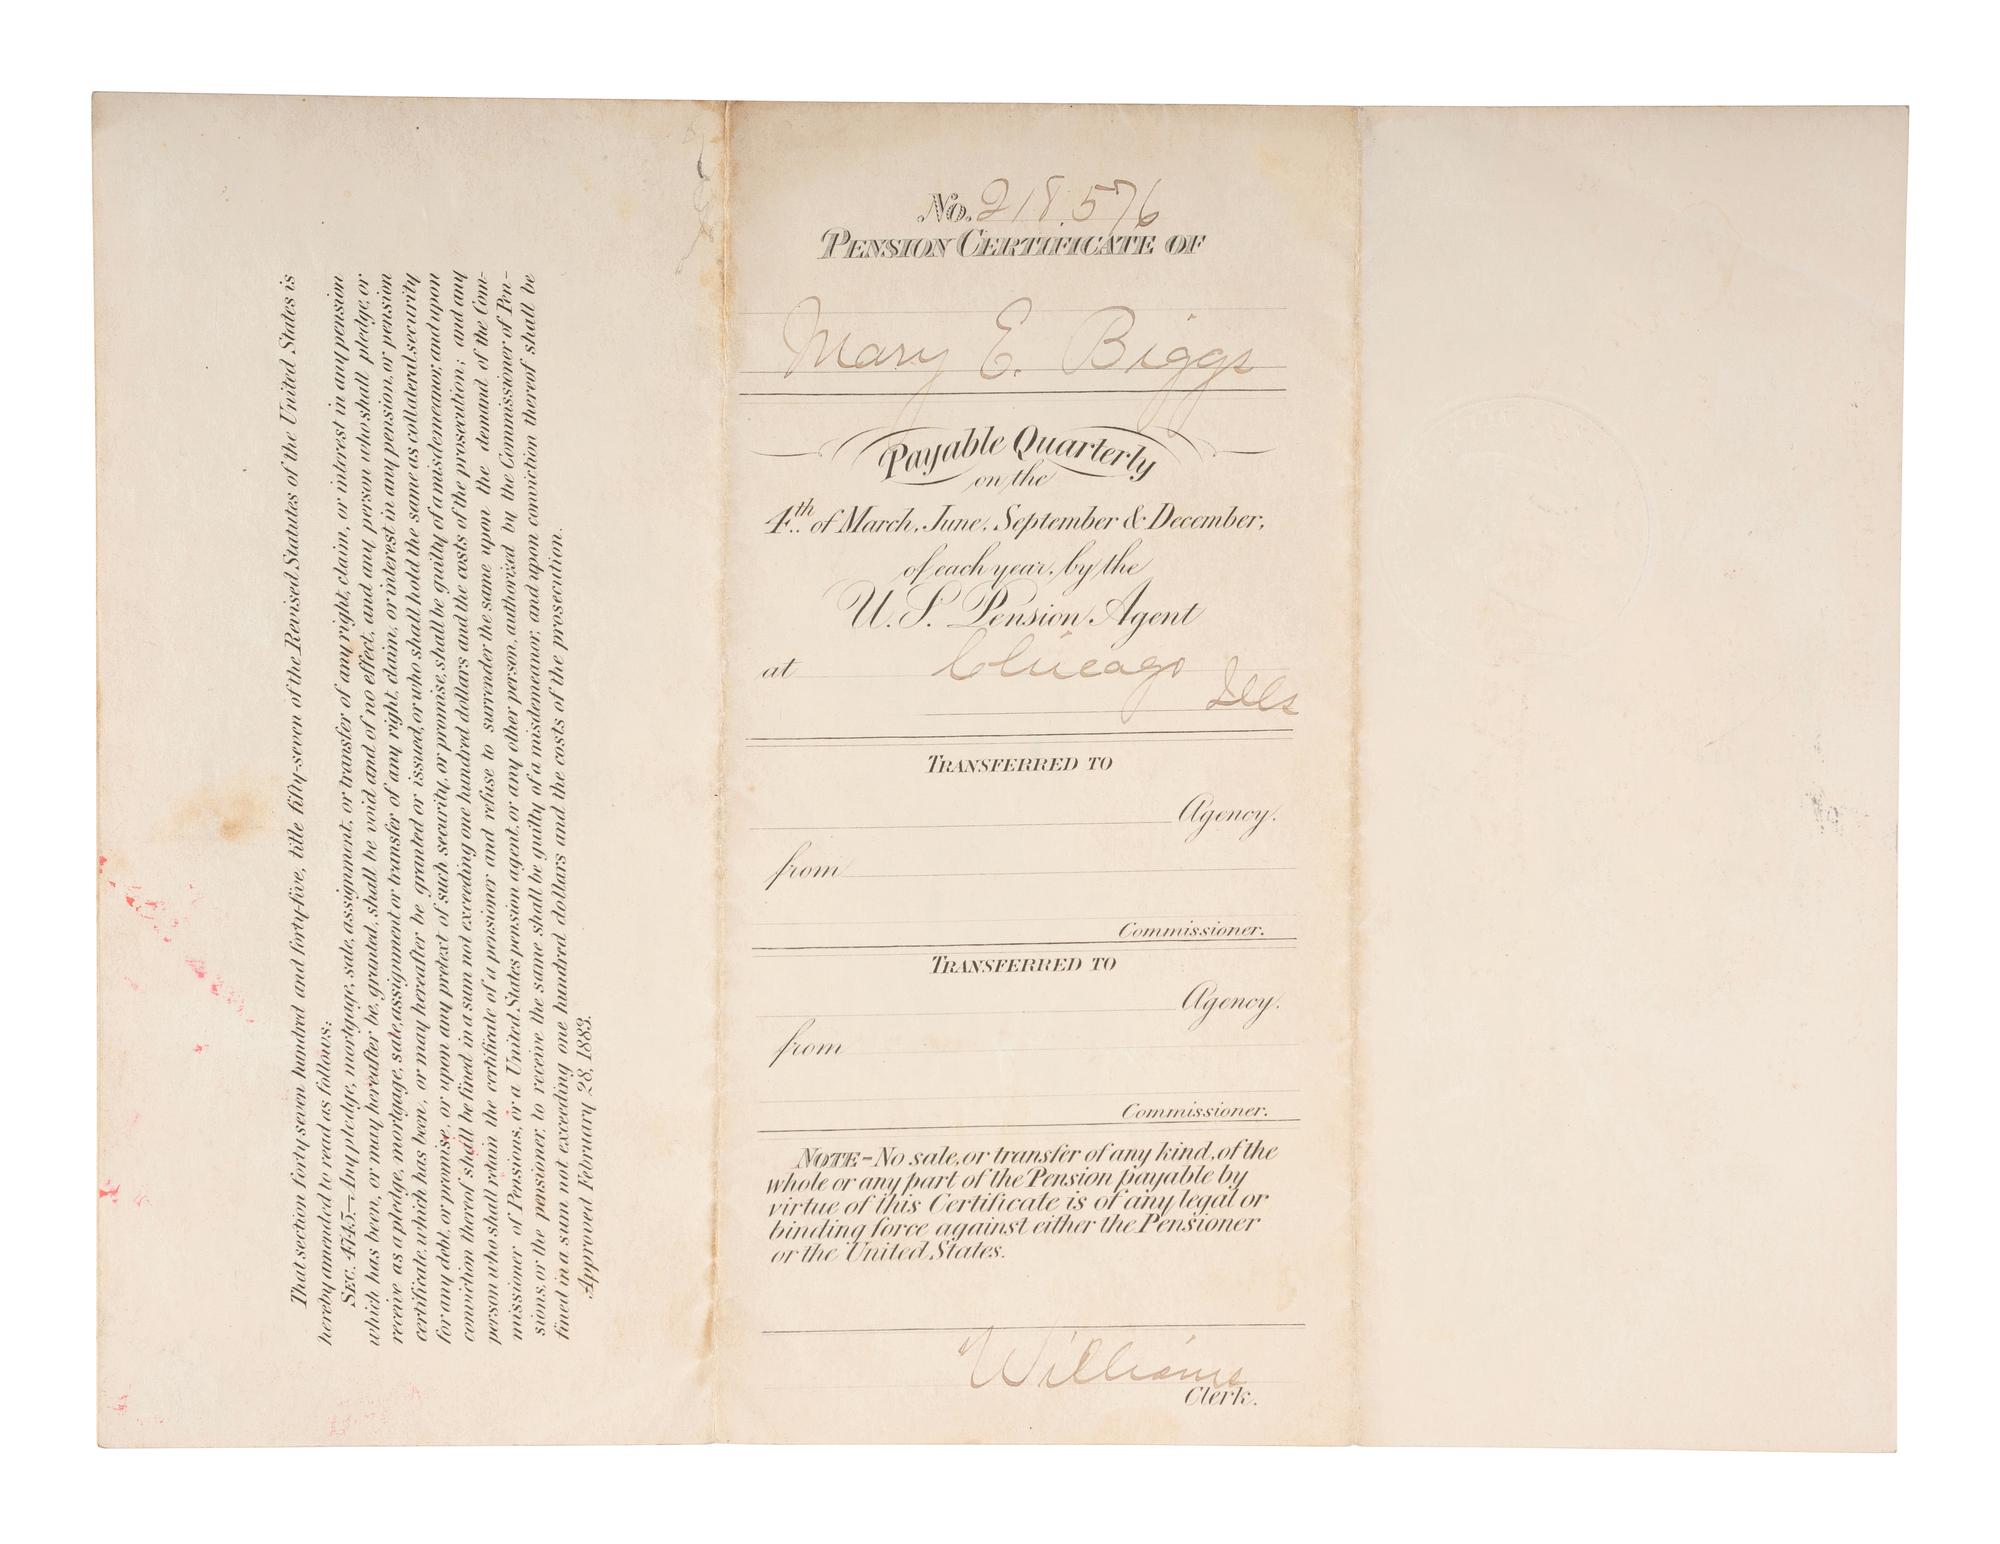 That section forty-seven hundred and forty-five, title fifty-seven of the Revised Statutes of the United States is
hereby amended to read as follows:
SEC. 4745.—Any pledge, mortgage, sale, assignment, or transfer of any right, claim, or interest in any pension
which has been, or may hereafter be, granted, shall be void and of no effect, and any person who shall pledge, or
receive as a pledge, mortgage, sale, assignment or transfer of any right, claim, or interest in any pension, or pension
certificate, which has been, or may hereafter be granted or issued, or who shall hold the same as collateral security
for any debt, or promise, or upon any pretext of such security, or promise, shall be guilty of a misdemeanor, and upon
conviction thereof shall be fined in a sum not exceeding one hundred dollars and the costs of the prosecution; and any
person who shall retain the certificate of a pensioner and refuse to surrender the same upon the demand of the Com-
missioner of Pensions, or a United States pension agent, or any other person, authorized by the Commissioner of Pen-
sions, or the pensioner, to receive the same shall be guilty of a misdemeanor, and upon conviction thereof shall be
fined in a sum not exceeding one hundred dollars and the costs of the prosecution.
Approved February 28, 1883.
No. 218.576
PENSION CERTIFICATE OF
Mary E. Biggs
Payable Quarterly
on the
4th of March, June, September & December,
of each year, by the
U.S. Pension Agent
at Chicago
Ills
TRANSFERRED TO
Agency.
from
Commissioner.
TRANSFERRED TO
Agency.
from
Commissioner.
NOTE—No sale, or transfer of any kind, of the
whole or any part of the Pension payable by
virtue of this Certificate is of any legal or
binding force against either the Pensioner
or the United States.
Williams
Clerk.